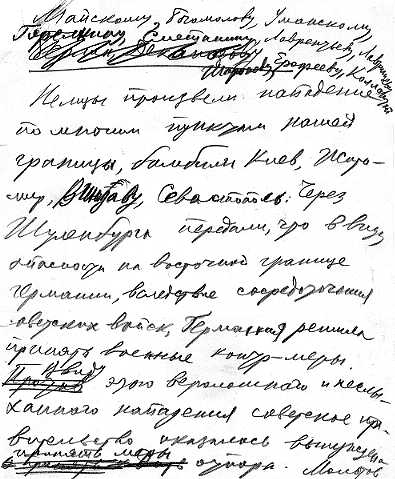 Майскому, Богомолову, Уманскому,
Горелкину, Сметанину, Лаврентьеву, Лаврищеву
Шаронову, Ерофееву, Коллонтай
Немцы произвели нападение
по многим пунктам нашей
границы, бомбили Киев, Жито-
мир, Севастополь. Через
Шуленбурга передали, что в виду
опасности на восточной границе
Германии, вследствие сосредоточения
советских войск, Германия решила
принять военные контр-меры.
Ввиду
этого вероломного и неслы-
ханного нападения советское пра-
вительство оказалось вынуждено
принять меры
отпора. Молотов